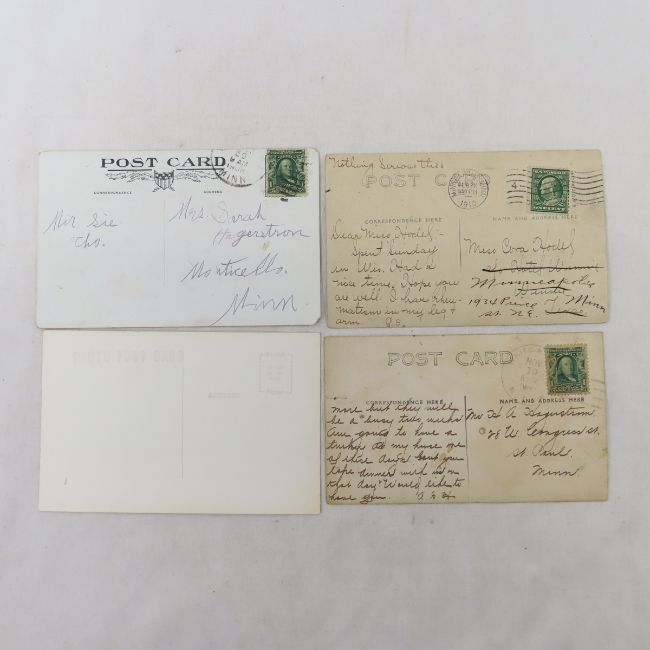 POST CARD
CORRESPONDENCE
ADDRESS
MINN
Mrs. Sarah
Hagerstrom
Monticello.
Minn.
Nothing Serious this
POST CARD
CORRESPONDENCE HERE
NAME AND ADDRESS HERE
1910
Dear Miss Hodel -
Spent Sunday
in Wis. Had a
nice time. Hope you
are well. I have rheu
matism in my leg +
arm
Miss Cora Hodel
Minneapolis
1934 Pierce
St. N.E.
Minn
POST CARD
ADDRESS
POST CARD
CORRESPONDENCE HERE
NAME AND ADDRESS HERE
more but there will
be a busy two weeks
are going to have a
turkey at my house one
of these days Cant you
take dinner with us on
that day Would like to
have you.
Mr H A Hagerstrom
W Congress St.
St Paul.
Minn.